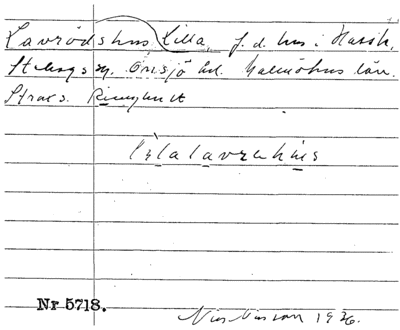 Lavrödshus Lilla, f.d. hus i Hassle,
Stehags sn. Onsjö hd. Malmöhus län.
Straes. Ringhult
lilalavrehus
Nr 5718.
Nils Nilsson 1936.